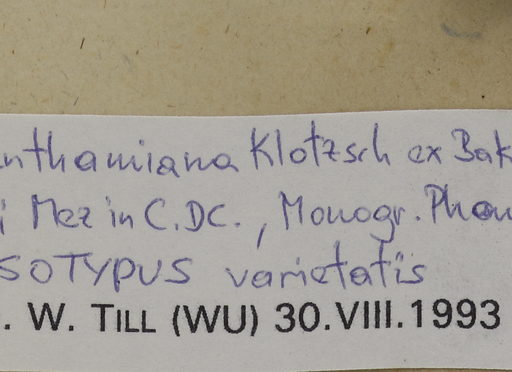 nthamiana Klotzsch ex Bak
i Mez in C.DC., Monogr. Phan
SOTYPUS varietatis
. W. TILL (WU) 30.VIII.1993